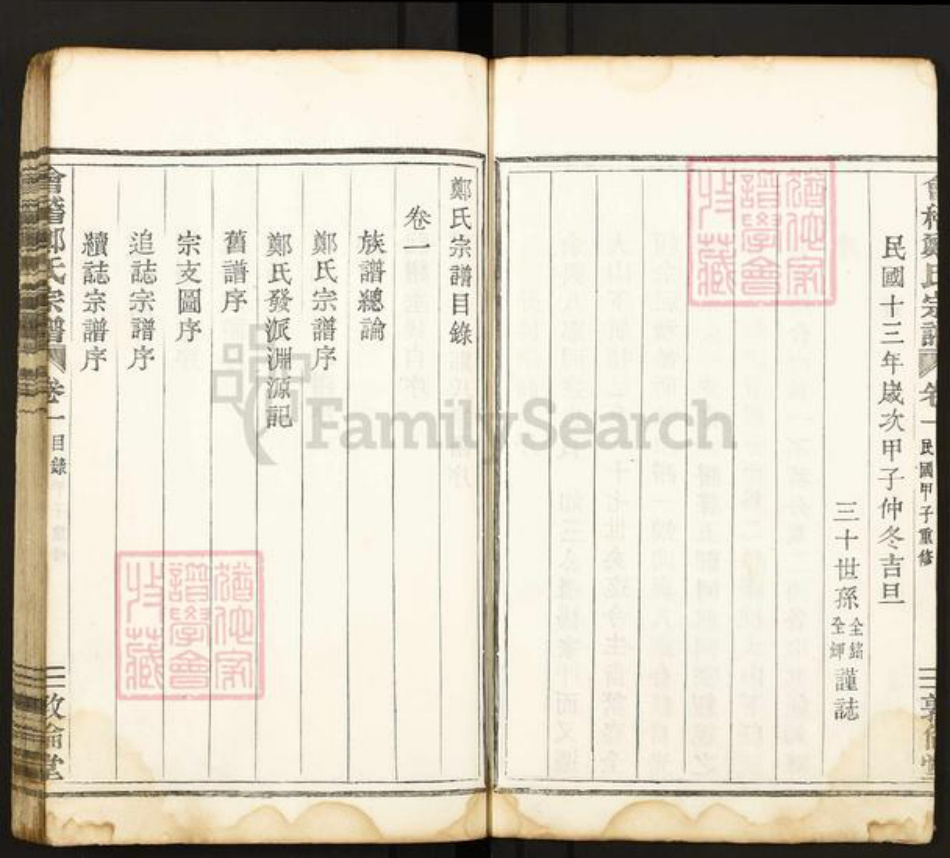 會稽鄭氏宗譜 卷一 民國甲子重修
民國十三年歲次甲子仲冬吉旦
三十世孫 全銘 全輝 謹誌
鄭氏宗譜目錄
卷一
族譜總論
鄭氏宗譜序
鄭氏發派淵源記
舊譜序
宗支圖序
追誌宗譜序
續誌宗譜序
會稽鄭氏宗譜 卷一 目錄 二 敦倫堂
FamilySearch